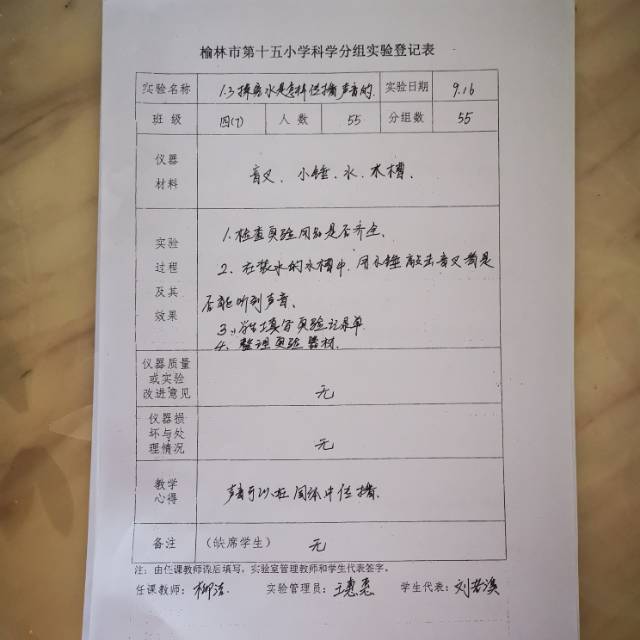 榆林市第十五小学科学分组实验登记表
实验名称 1.3探究水是怎样传播声音的. 实验日期 9.16
班 级 四(7) 人 数 55 分组数 55
仪器
材料
音叉、小锤、水、木槽、
实验
过程
及其
效果
1.检查实验用品是否齐全.
2、在装水的水槽中.用小锤敲击音叉
否能听到声音、
3、学生填写实验记录单
4、整理实验器材.
仪器质量
或实验
改进意见
无
仪器损
坏与处
理情况
无
教学
心得
声音可以在固体中传播.
备注 (缺席学生) 无
注：由任课教师课后填写，实验室管理教师和学生代表签字。
任课教师: 柳洁. 实验管理员: 学生代表: